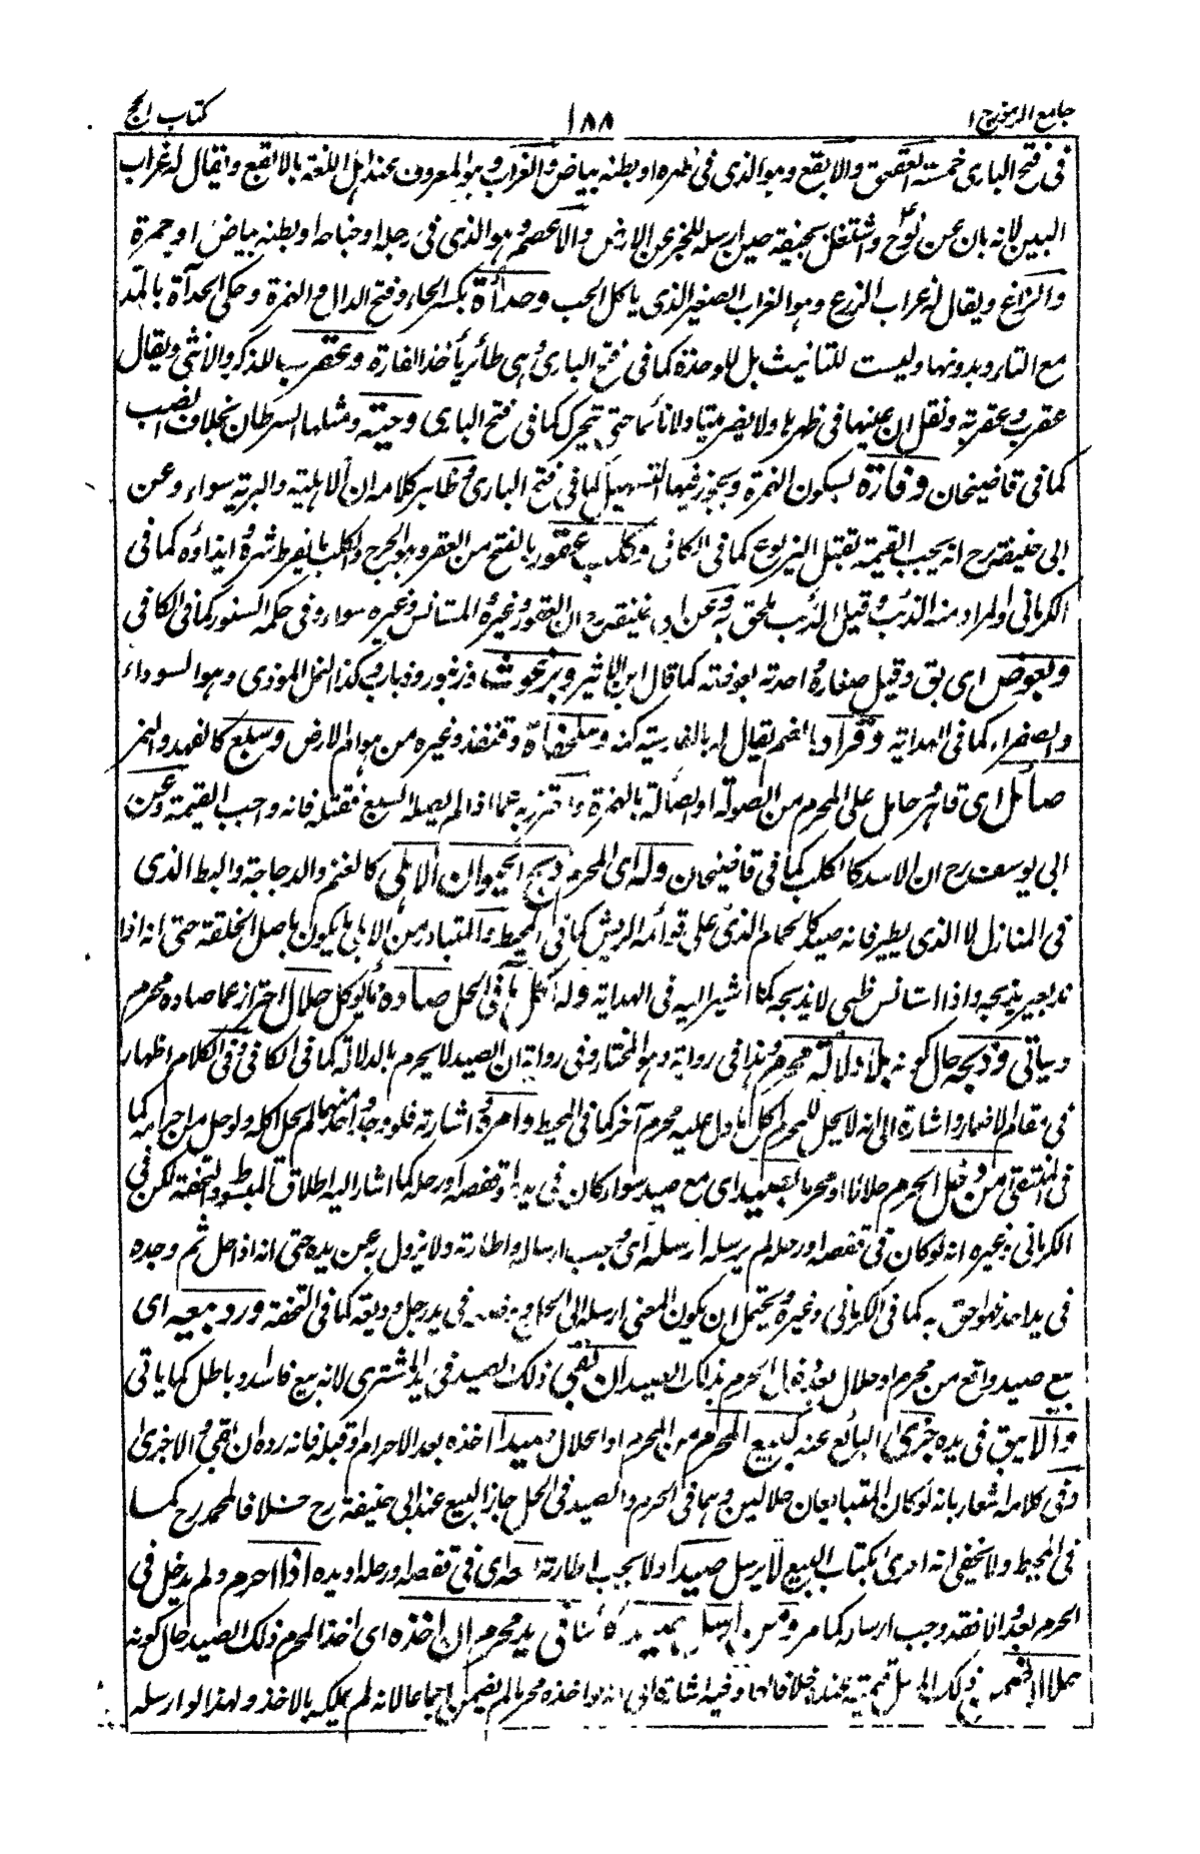 جامع الرموز ج ١
١٨٨
كتاب الحج
فى فتح البارى خمسة العقعق والابقع وهو الذى فى ظهره او بطنه بياض والغراب وهو المعروف عند اهل اللغة بالابقع ويقال له غراب
البين لانه بان عن نوح واشتغل بجيفة حين ارسله للخبر عن الارض والاعصم وهو الذى فى رجله او جناحه او بطنه بياض او حمرة
والزاغ ويقال له غراب الزرع وهو الغراب الصغير الذى ياكل الحب وحدأة بكسر الحاء وفتح الدال والهمزة وحكى الحدآة بالمد
مع التاء وبدونها وليست للتانيث بل للوحدة كما فى فتح البارى وهى طائر يأخذ الفارة وعقرب للمذكر والانثى ويقال
عقرب وعقربة ونقل ان عينها فى ظهرها ولا يضر ميتا ولا نائما حتى يتحرك كما فى فتح البارى وحية ومثلها السرطان بخلاف الضب
كما فى قاضيخان وفارة بسكون الهمزة ويجوز فيها التسهيل كما فى فتح البارى وظاهر كلامه ان الاهلية والبرية سواء وعن
ابى حنيفة رح انه يجب القيمة بقتل اليربوع كما فى الكافى وكلب عقور بالفتح من العقر وهو الجرح والكلب ما يفرط شره وايذاؤه كما فى
الكرمانى والمراد منه الذئب وقيل الذئب يلحق به وعن ابى حنيفة رح ان العقور وغيره المستانس وغيره سواء وفى حكمه السنور كما فى الكافى
وبعوض اى بق وقيل صغاره واحدته بعوضة كما قال ابن الاثير وبرغوث وزنبور وذباب وكذا النمل الموذى وهو السوداء
والصفراء كما فى الهداية وقراد بالضم يقال له بالفارسية كنه وسلحفاة وقنفذ وغيره من هوام الارض وسبع كالفهد والنمر
صائل اى قاهر حامل على المحرم من الصولة او الصألة بالهمزة واحترز به عما اذا لم يصله السبع فقتله فانه واجب القيمة وعن
ابى يوسف رح ان الاسد كالكلب كما فى قاضيخان وله اى المحرم ذبح الحيوان الاهلى كالغنم والدجاجة والبط الذى
فى المنازل لا الذى يطير فانه صيد كالحمام الذى على قوائمه الريش كما فى المحيط والمتبادر من الاهلى ما يكون باصل الخلقة حتى انه اذا
ند بعير يذبحه واذا استانس ظبى لا يذبحه كما اشير اليه فى الهداية وله اكل ما فى الحل صاده ما يوكل حلال احتراز عما صاده محرم
وياتى وذبحه حال كونه بلا دلالة محرم وهذا فى رواية وهو المختار وفى رواية ان الصيد لا يحرم بالدلالة كما فى الكافى وفى الكلام اظهار
فى مقام الاضمار واشارة الى انه لا يحل للمحرم اكل ما دل عليه محرم آخر كما فى المحيط وامره واشارته فلو وجد احدهما لم يحل اكله ولو حل من احرامه كما
فى المنتقى ومن دخل الحرم حلالا او محرما بصيد اى مع صيد سواء كان فى يده او قفصه او رحله كما اشار اليه اطلاق المبسوط والتحفة لكن فى
الكرمانى وغيره انه لو كان فى قفصه او رحله لم يرسله ارسله اى وجب ارساله واطارته ولا يزول به عن يده حتى انه اذا حل ثم وجده
فى يد احد فهو احق به كما فى الكرمانى وغيره ويحتمل ان يكون المعنى ارسله الى الحل فى يد رجل وديعة كما فى التحفة ورد بيعه اى
بيع صيد واقع من محرم او حلال بعد دخول الحرم بذلك الصيد ان بقى ذلك الصيد فى يد المشترى لانه بيع فاسد وباطل كما ياتى
والا يبق فى يده جزى البائع عنه كبيع المحرم من المحرم او الحلال صيدا اخذه بعد الاحرام او قبله فانه رده ان بقى والا جزى
وفى كلامه اشعار بانه لو كان المتبايعان حلالين وهما فى الحرم والصيد فى الحل جاز البيع عند ابى حنيفة رح خلافا لمحمد رح كما
فى المحيط ولا يخفى انه احرى بكتاب البيع لا يرسل صيدا ولا يجب اطارته اى فى قفصه او رحله او يده اذا احرم ولم يدخل فى
الحرم بعد والا فقد وجب ارساله كما مر ومن ارسل صيدا كائنا فى يد محرم ان اخذه اى اخذ المحرم ذلك الصيد حال كونه
حلالا ضمن ذلك المرسل قيمته عنده خلافا لهما وفيه اشارة الى انه لو اخذه محرما لم يضمن اجماعا لانه لم يملكه بالاخذ ولهذا لو ارسله